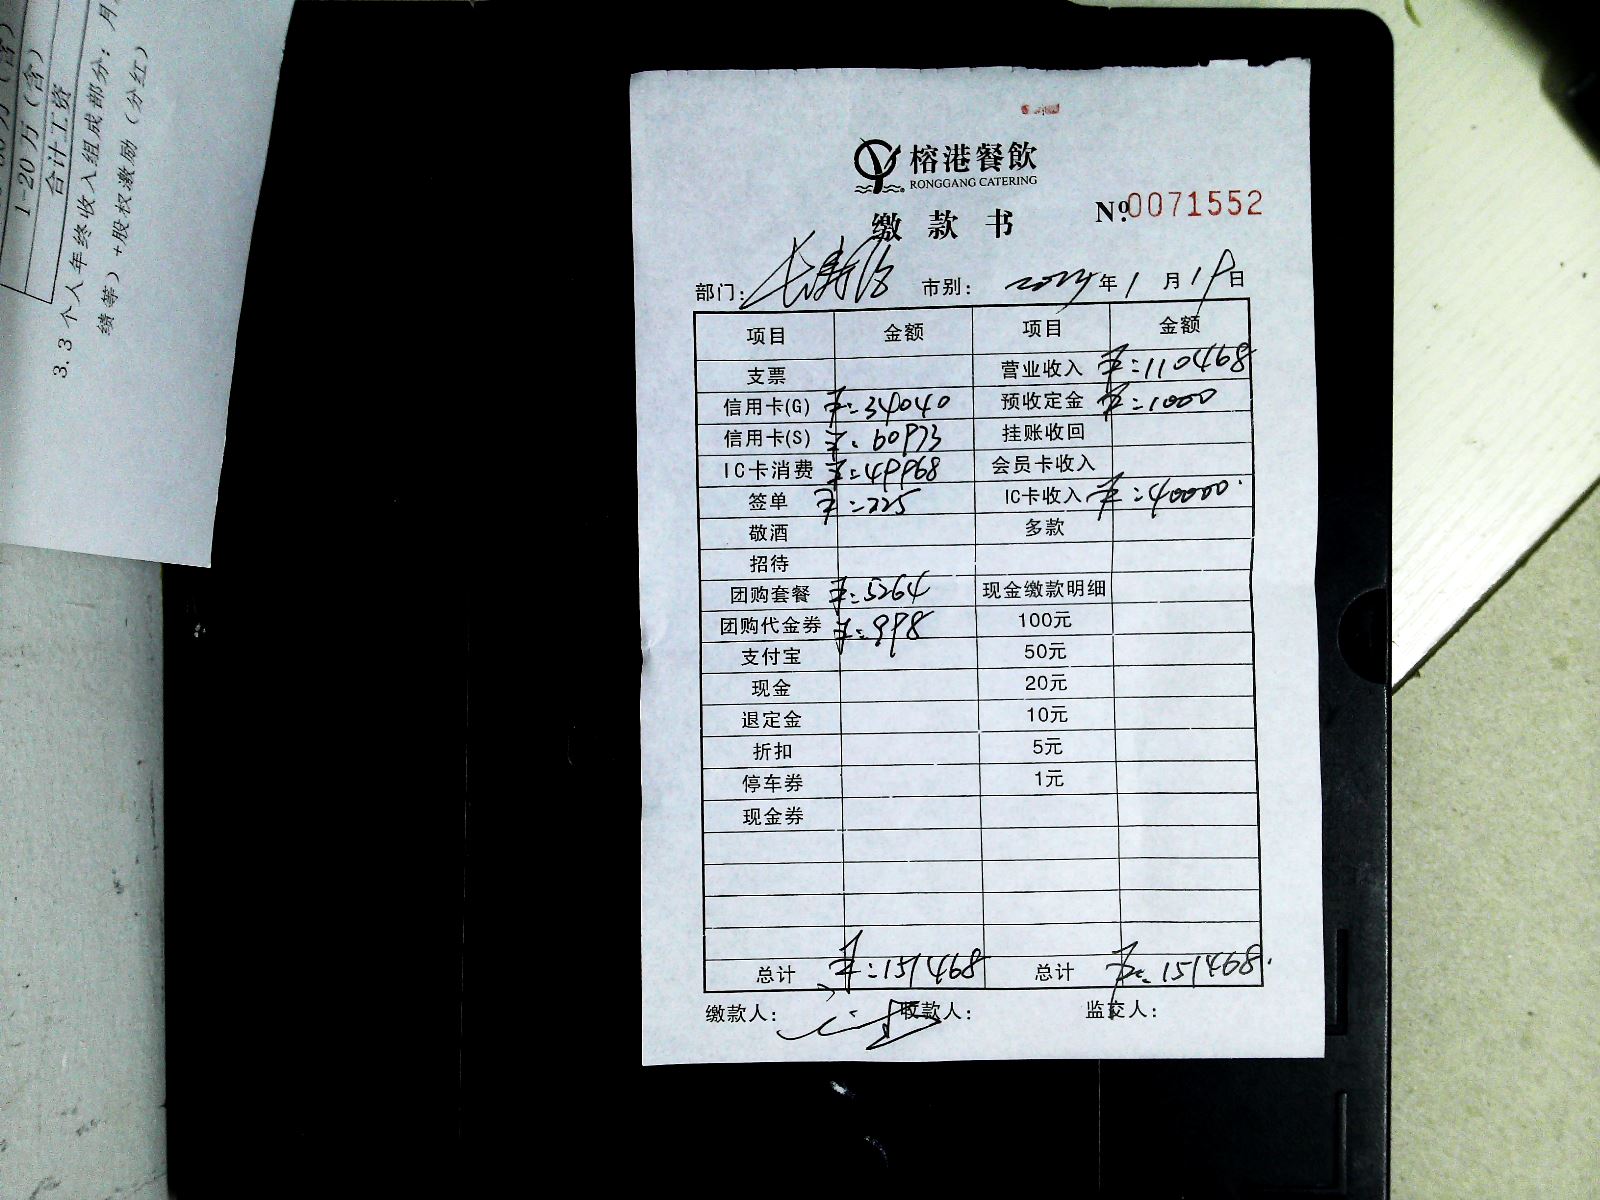 1-20万(含)
合计工资
3.3个人年终收入组成部分:月
绩等)+股权激励(分红)
榕港餐飲
RONGGANG CATERING
缴款书
No.0071552
部门: 市别: 年1月19日
项目 金额 项目 金额
支票 营业收入 ¥:110468
信用卡(G) ¥:34040 预收定金 ¥:1000
信用卡(S) ¥:60973 挂账收回
IC卡消费 ¥:49968 会员卡收入
签单 ¥:225 IC卡收入 ¥:40000
敬酒 多款
招待
团购套餐 ¥:5264 现金缴款明细
团购代金券 ¥:998 100元
支付宝 50元
现金 20元
退定金 10元
折扣 5元
停车券 1元
现金券
总计 ¥:151468 总计 ¥:151468
缴款人: 收款人: 监交人: